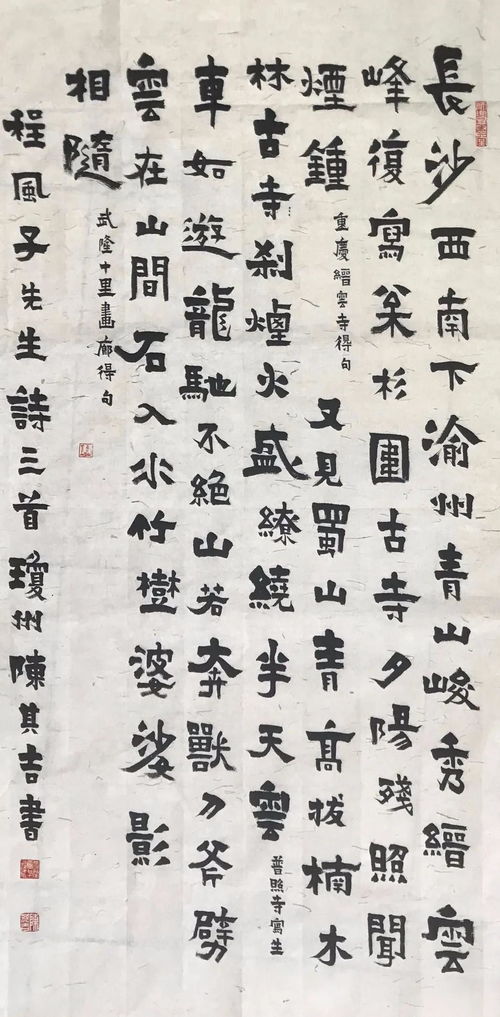 長沙西南下渝州青山峻秀縉雲
峰復寫杉圍古寺夕陽殘照聞
煙鍾 重慶縉雲寺得句 又見蜀山青高拔楠木
林古寺刹煙火盛繚繞半天雲 普照寺寫生
車如遊龍馳不絕山若奔獸刀斧劈
雲在山間石入水竹樹婆娑影
相隨 武隆十里畫廊得句
程風子先生詩三首瓊州陳其吉書